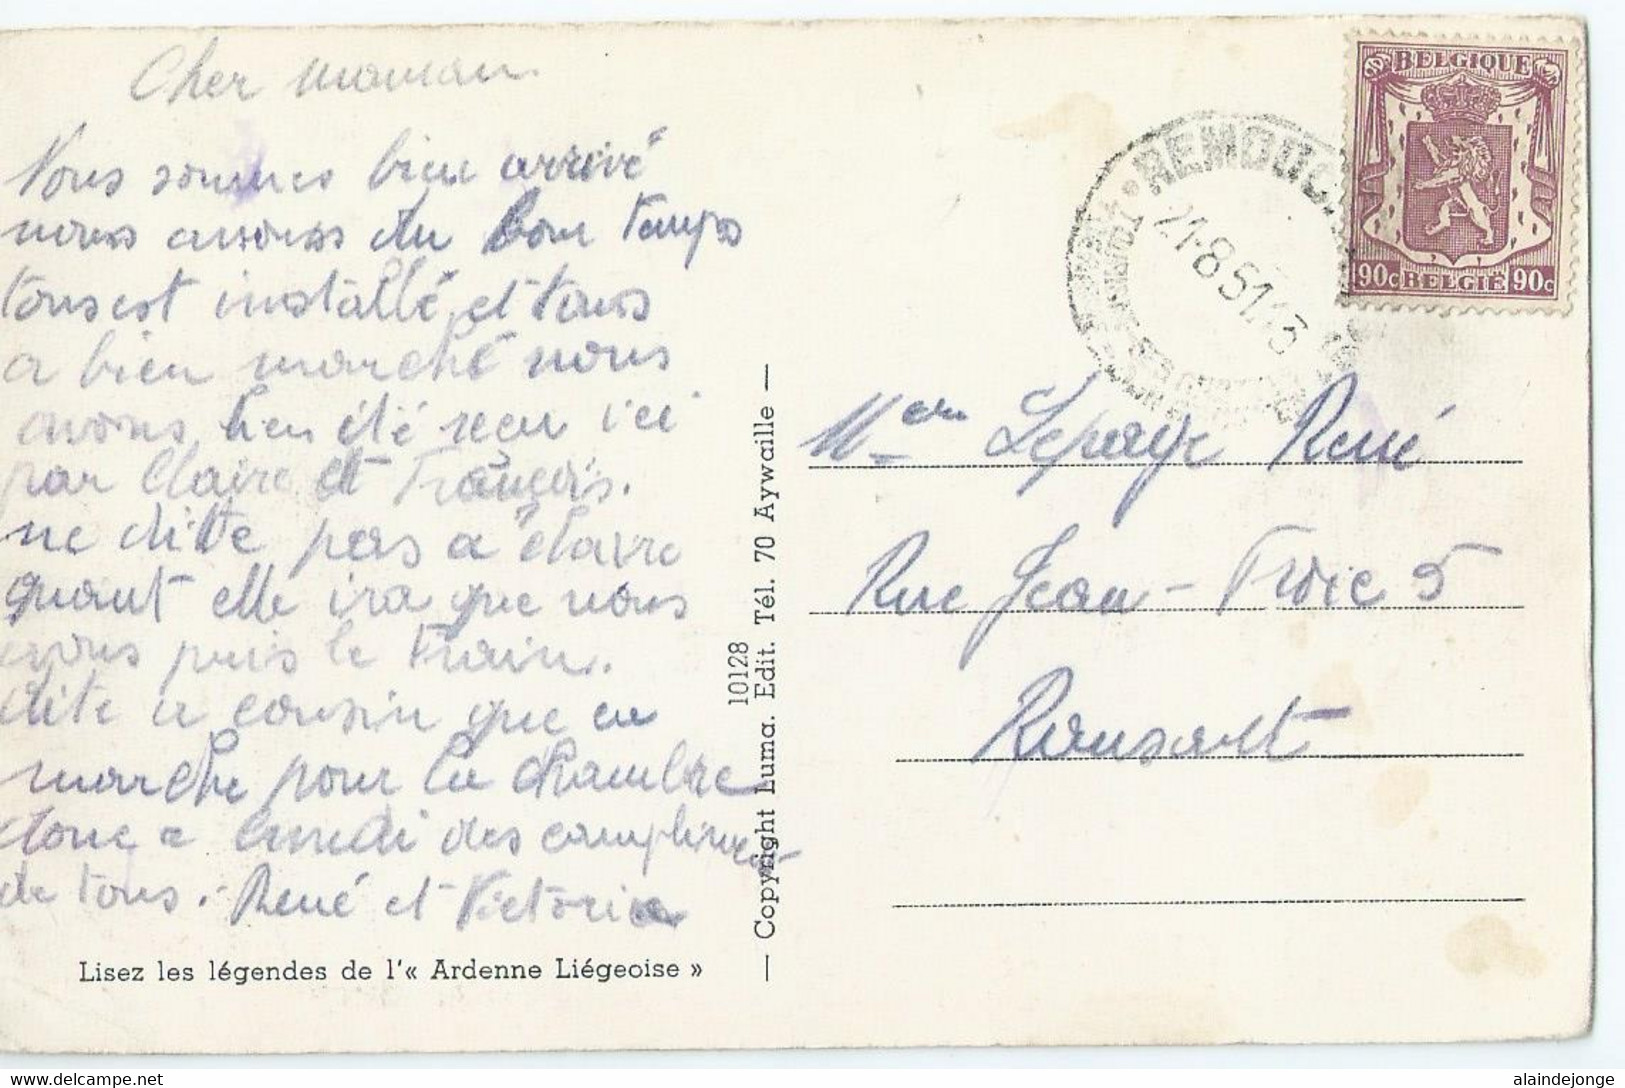 Cher maman.
Nous sommes bien arrivé
nous avons du bon temps
tous est installé et tous
a bien marché nous
avons bien été reçu ici
par Claire et François.
ne ditte pas a Claire
quant elle ira que nous
avons puis le train.
dite a cousin que ca
marche pour la chambre
donc a lundi des compliment
de tous. René et Victoria
Lisez les légendes de l'« Ardenne Liégeoise »
10128
— Copyright Luma. Edit. Tél. 70 Aywaille —
BELGIQUE
90c BELGIË 90c
REMOUC
21-8 51 13
Lepage René
Rue Jean - Froic 5
Ransart
alaindejonge